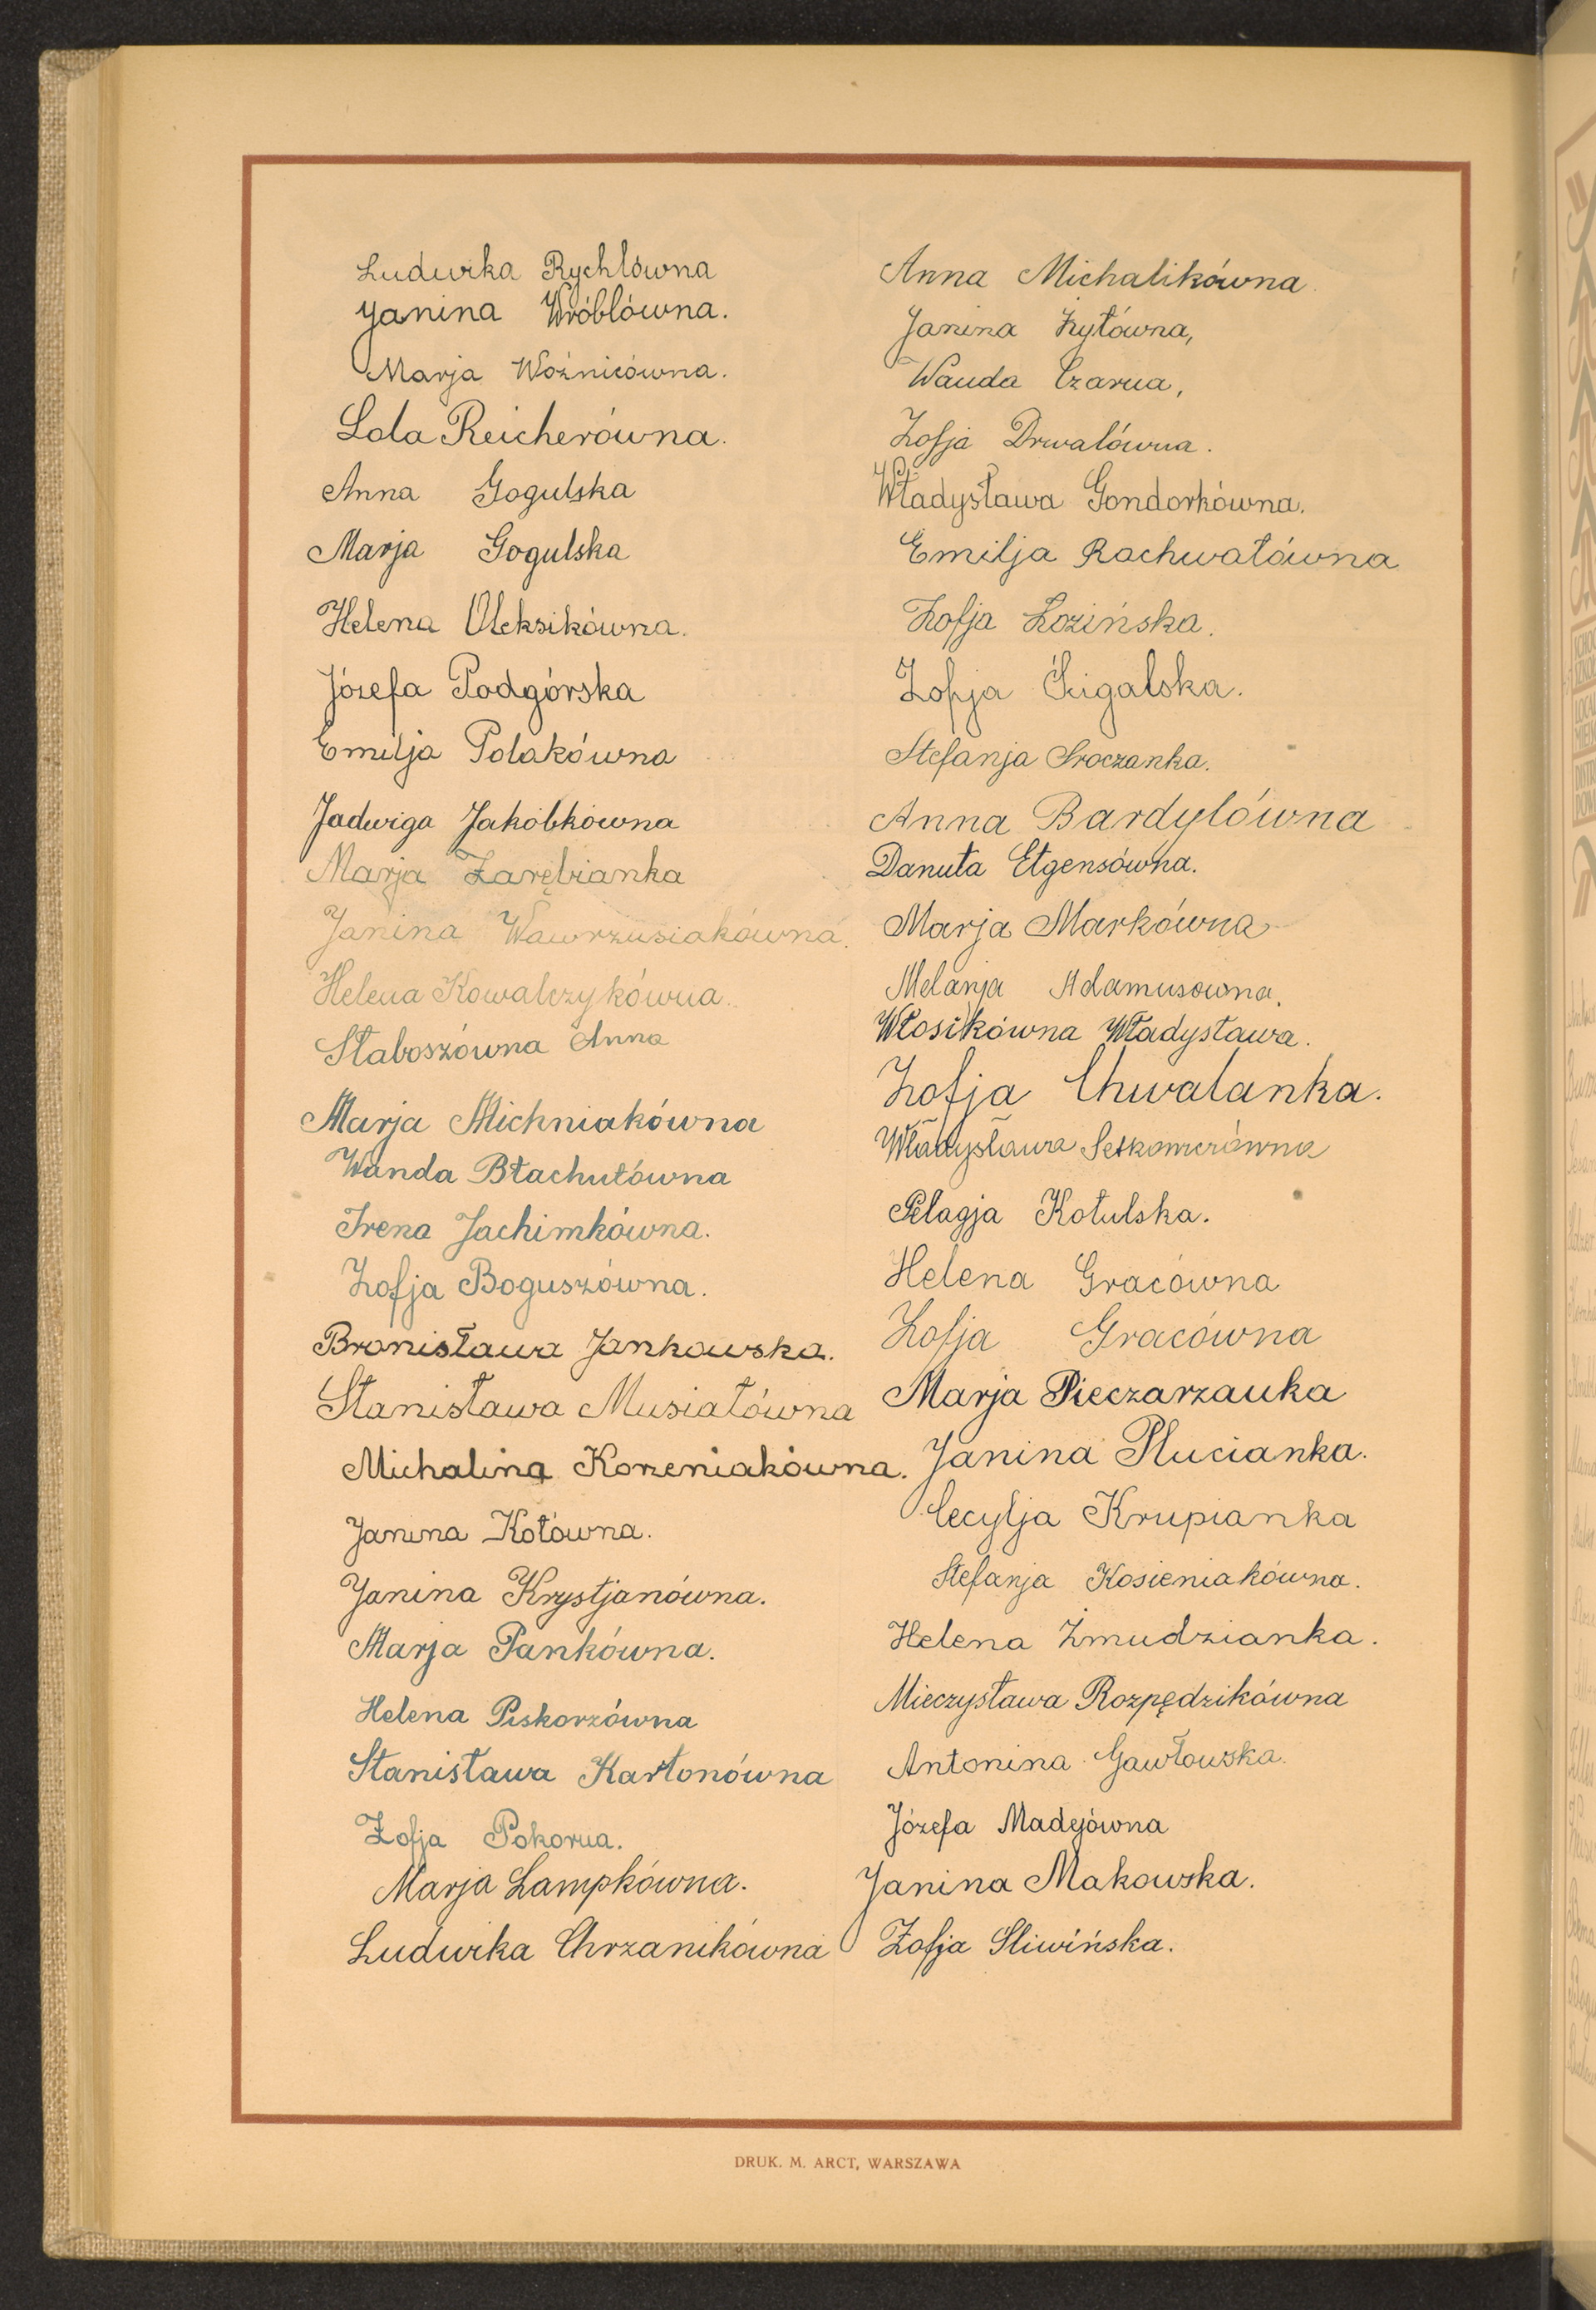 Ludwika Rychlówna
Janina Wróblówna.
Marja Woźnicówna.
Lola Reicherówna.
Anna Gogulska
Marja Gogulska
Helena Oleksikówna.
Józefa Podgórska
Emilja Polakówna
Jadwiga Jakóbkówna
Marja Zarębianka
Janina Wawrzusiakówna.
Helena Kowalczykówna.
Słaboszówna Anna
Marja Michniakówna
Wanda Błachutówna
Irena Jachimkówna.
Zofja Boguszówna.
Bronisława Jankowska.
Stanisława Musiałówna
Michalina Korzeniakówna.
Janina Kotówna.
Janina Krystjanówna.
Marja Pankówna.
Helena Piskorzówna
Stanisława Kartonówna
Zofja Pokorna.
Marja Lampkówna.
Ludwika Chrzanikówna
Anna Michalikówna.
Janina Żytówna,
Wanda Czarna,
Zofja Drwalówna.
Władysława Gondorkówna.
Emilja Rachwałówna
Zofja Łozińska.
Zofja Ścigalska.
Stefanja Sroczanka.
Anna Bardylówna
Danuta Etgensówna.
Marja Markówna
Melanja Adamusówna.
Włosikówna Władysława.
Zofja Chwalanka.
Władysława
Pelagja Kotulska.
Helena Gracówna
Zofja Gracówna
Marja Pieczarzanka
Janina Plucianka.
Cecylja Krupianka
Stefanja Kosieniakówna.
Helena Żmudzianka.
Mieczysława Rozpędzikówna
Antonina Gawłowska.
Józefa Madejówna
Janina Makowska.
Zofja Śliwińska.
DRUK. M. ARCT, WARSZAWA